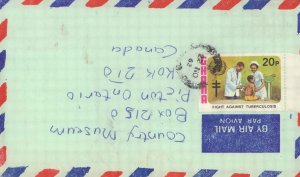 20p
GHANA
FIGHT AGAINST TUBERCULOSIS
BY AIR MAIL
PAR AVION
Country Museum
Box 1250
Picton Ontario
K0K 2T0
Canada